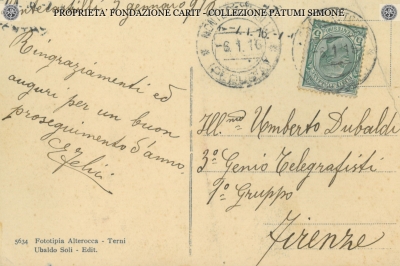 PROPRIETA' FONDAZIONE CARIT - COLLEZIONE PATUMI SIMONE
3 gennaio 9
Ringraziamenti ed
auguri per un buon
proseguimento d'anno
EFelici
7.1.16.
8.1.16
Ill.mo Umberto Dubaldi
3º Genio Telegrafisti
1º Gruppo
Firenze
5634 Fototipia Alterocca - Terni
Ubaldo Soli - Edit.